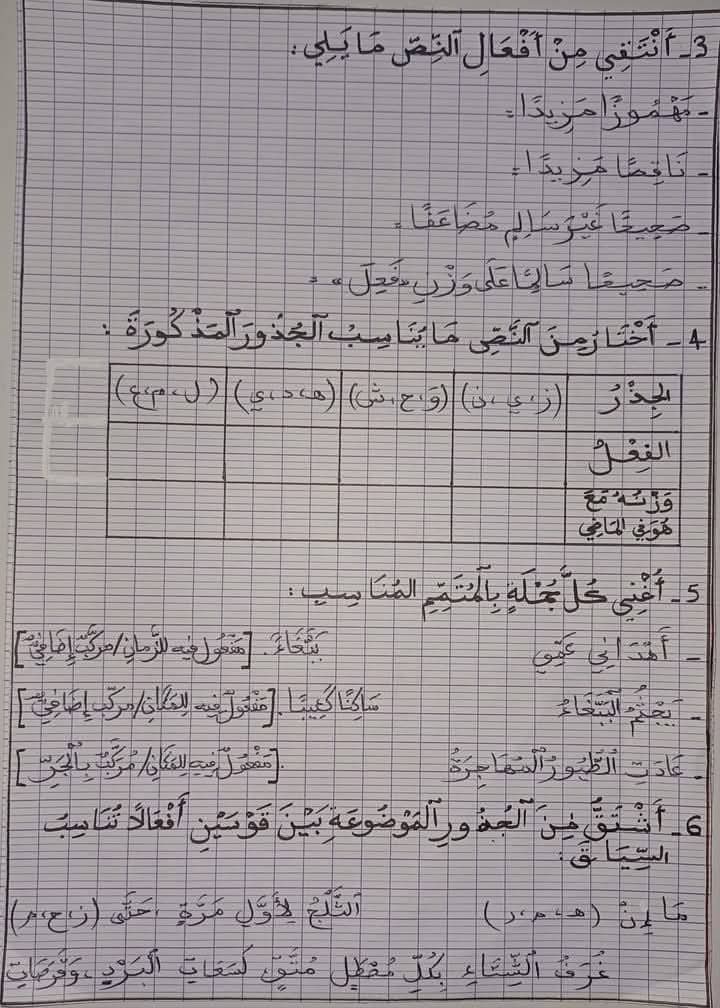 3- أَنْتَقِي مِنْ أَفْعَالِ النَّصِّ مَا يَلِي:
- مَهْمُوزًا مَزِيدًا:
- نَاقِصًا مَزِيدًا:
- صَحِيحًا غَيْرَ سَالِمٍ مُضَاعَفًا:
- صَحِيحًا سَالِمًا عَلَى وَزْنِ «فَعِلَ»:
4- أَخْتَارُ مِنَ النَّصِّ مَا يُنَاسِبُ الجُذُورَ المَذْكُورَةَ:
الجِذْرُ (ز، ي، ن) (و، ح، ش) (ه، د، ي) (ل، م، ع)
الفِعْلُ
وَزْنُهُ مَعَ
هُوَ فِي المَاضِي
5- أُغْنِي كُلَّ جُمْلَةٍ بِالمُتَمِّمِ المُنَاسِبِ:
- أَهْدَانِي عَمِّي بَبَّغَاءً. [مَفْعُول فِيهِ لِلزَّمَانِ/مُرَكَّبٌ إِضَافِيٌّ]
- يَجْثُمُ البَبَّغَاءُ سَاكِنًا كَئِيبًا. [مَفْعُولٌ فِيهِ لِلمَكَانِ/مركّب إِضَافِيٌّ]
- عَادَتِ الطُّيُورُ المُهَاجِرَةُ. [مَفْعُولٌ فِيهِ لِلمَكَانِ/مُرَكَّبٌ بِالْجَرِّ]
6- أَشْتَقُّ مِنَ الجُذُورِ المَوْضُوعَةِ بَيْنَ قَوْسَيْنِ أَفْعَالًا تُنَاسِبُ
السِّيَاقَ:
مَا إِنْ (ه، م، ر) الثَّلْجُ لِأَوَّلِ مَرَّةٍ، حَتَّى (ز، ح، م)
غُرَفُ الشِّتَاءِ بِكُلِّ مُصْطَلٍ مُتَّقٍ لَسَعَاتِ البَرْدِ، وَقَرَصَاتِ